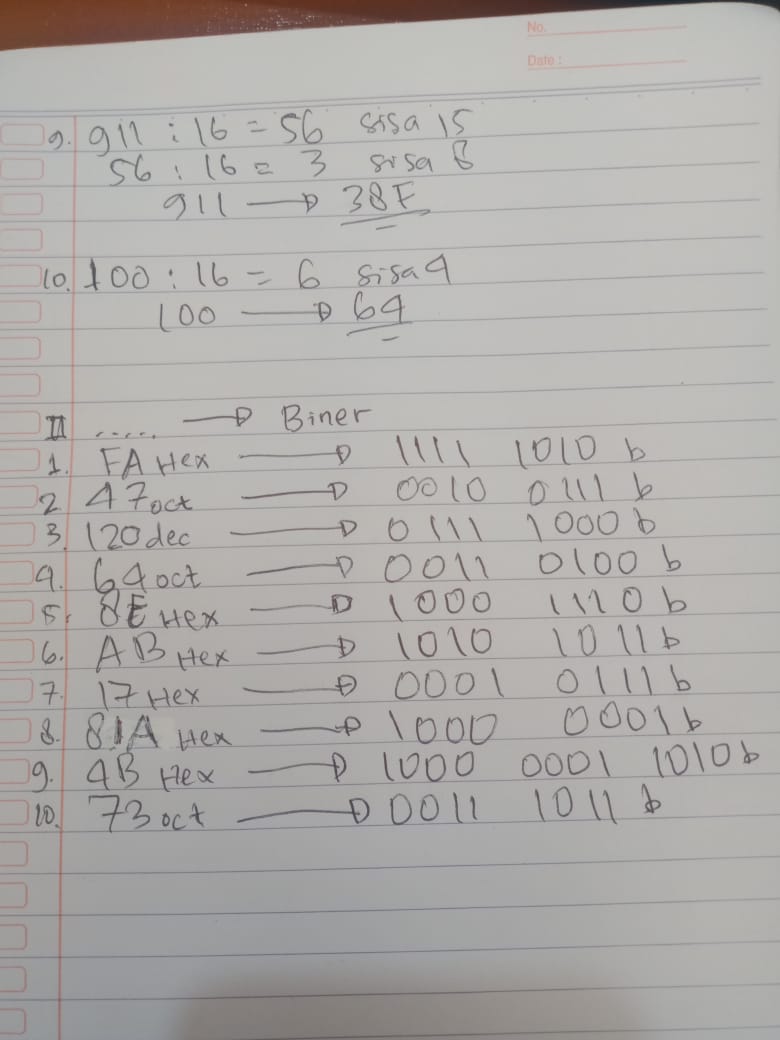 No.
Date :
9. 911 : 16 = 56 sisa 15
56 : 16 = 3 sisa 8
911 → 38F
10. 100 : 16 = 6 sisa 4
100 → 64
II ..... → Biner
1. FA Hex → 1111 1010 b
2. 47 oct → 0010 0111 b
3. 120 dec → 0111 1000 b
4. 64 oct → 0011 0100 b
5. 8E Hex → 1000 1110 b
6. AB Hex → 1010 1011 b
7. 17 Hex → 0001 0111 b
8. 81A Hex → 1000 0001 b
9. 4B Hex → 1000 0001 1010 b
10. 73 oct → 0011 1011 b